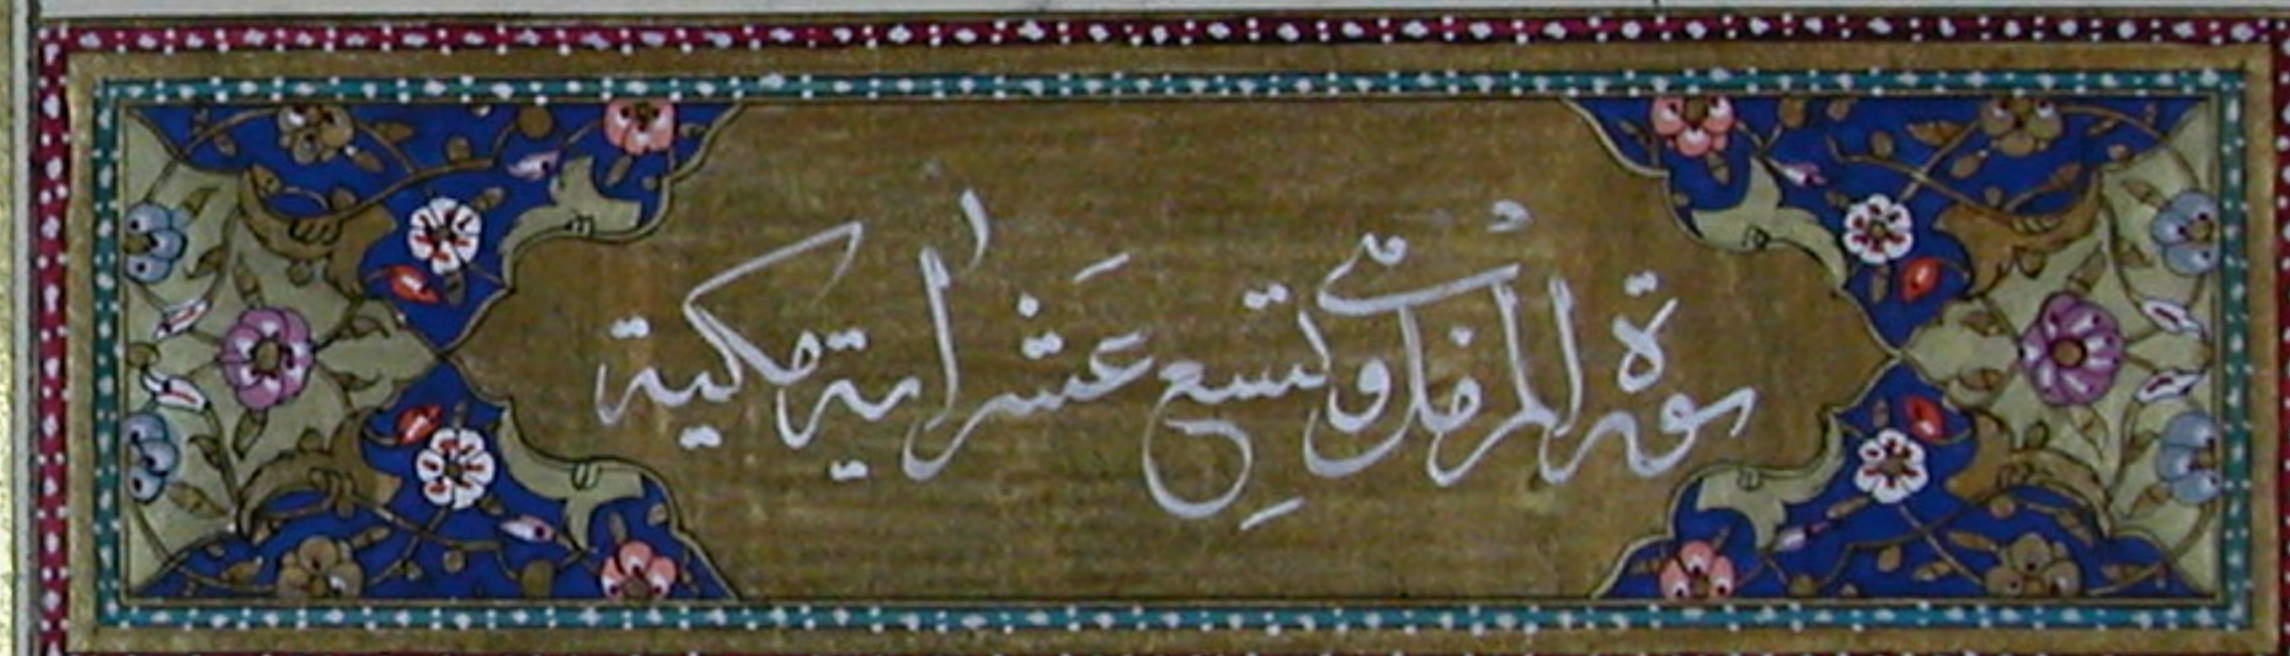 سورة المزمل وهى تسع عشر اٰية مكية